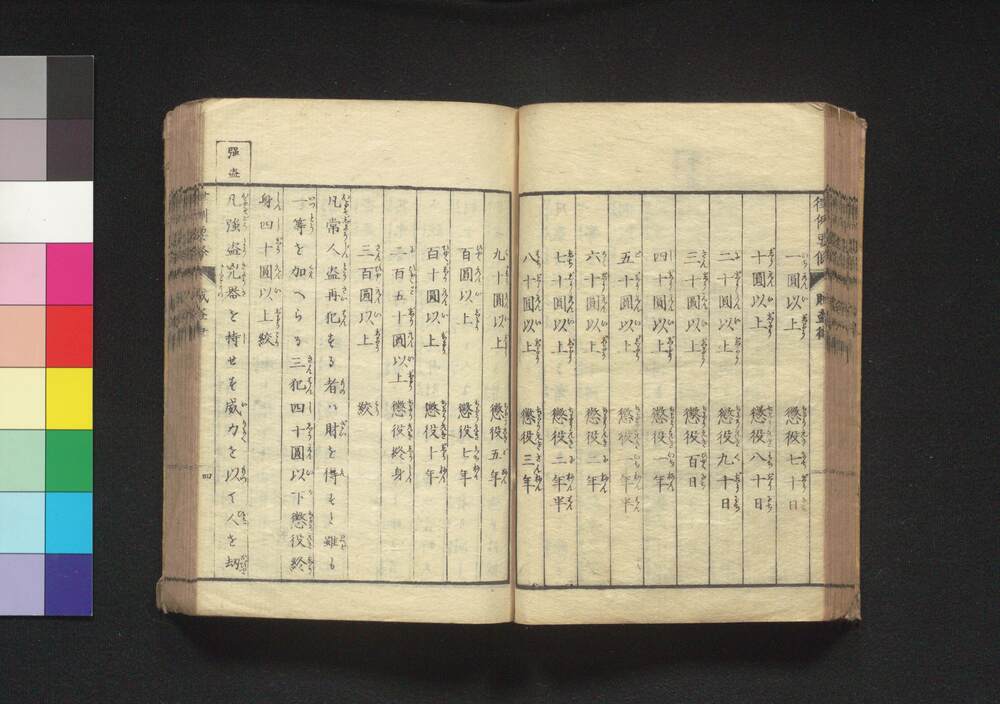 一圓以上 懲役七十日
十圓以上 懲役八十日
二十圓以上 懲役九十日
三十圓以上 懲役百日
四十圓以上 懲役一年
五十圓以上 懲役一年半
六十圓以上 懲役二年
七十圓以上 懲役二年半
八十圓以上 懲役三年
九十圓以上 懲役五年
百圓以上 懲役七年
百十圓以上 懲役十年
二百五十圓以上 懲役終身
三百圓以上 絞
凡常人盗再犯をる者ハ財を得もと雖も
一等を加へらる三犯四十圓以下懲役終
身四十圓以上絞
強盗
凡強盗兇器を持せを威力を以て人を劫
四